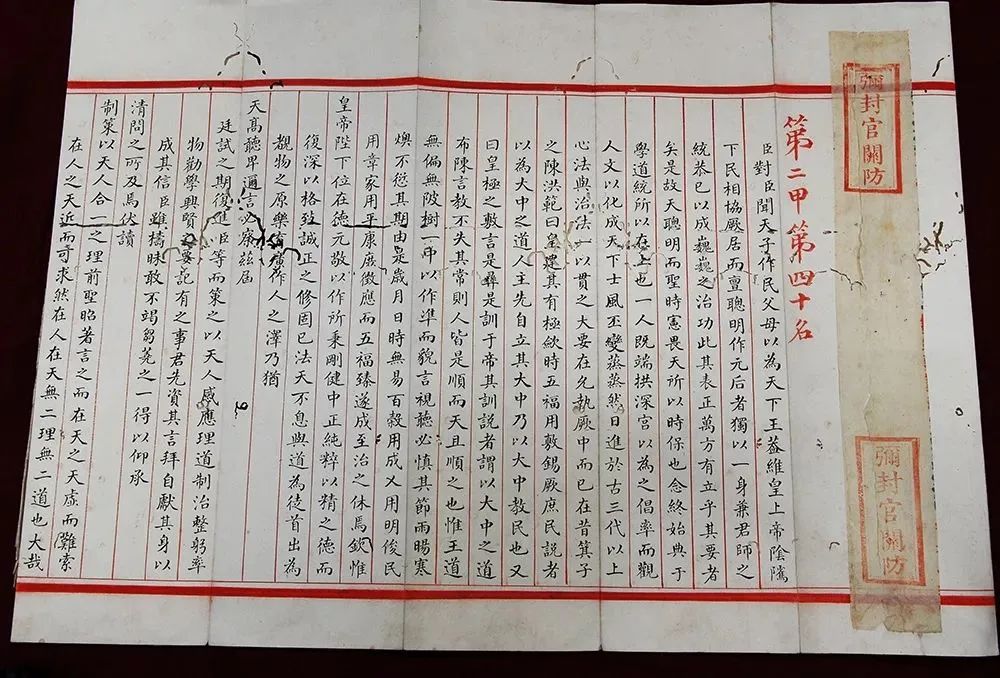 彌封官關防
彌封官關防
第二甲第四十名
臣對臣聞天子作民父母以為天下王蓋維皇上帝陰隲
下民相協厥居而亶聰明作元后者獨以一身兼君師之
統恭已以成巍巍之治功此其表正萬方有立乎其要者
矣是故天聰明而聖時憲畏天所以時保也念終始典于
學道統所以在上也一人既端拱深宮以為之倡率而觀
人文以化成天下士風丕變蒸蒸然日進於古三代以上
心法與治法一以貫之大要在允執厥中而已在昔箕子
之陳洪範曰皇建其有極歛時五福用敷錫厥庶民說者
以為大中之道人主先自立其大中乃以大中教民也又
曰皇極之敷言是彝是訓于帝其訓說者謂以大中之道
布陳言教不失其常則人皆是順而天且順之也惟王道
無偏無陂樹一中以作準而貌言視聽必慎其節雨暘寒
燠不愆其期由是歲月日時無易百穀用成乂用明俊民
用章家用平康庶徵應而五福臻遂成至治之休焉欽惟
皇帝陛下位在德元敬以作所秉剛健中正純粹以精之德而
復深以格致誠正之修固已法天不息與道為徒首出為
覩物之原樂育作人之澤乃猶
天高聽卑邇言必察茲屆
廷試之期復進臣等而策之以天人感應理道制治整躬率
物勸學興賢之要記有之事君先資其言拜自獻其身以
成其信臣雖檮昧敢不竭芻蕘之一得以仰承
清問之所及焉伏讀
制策以天人合一之理前聖昭著言之而在天之天虛而難索
在人之天近而可求然在人在天無二理無二道也大哉